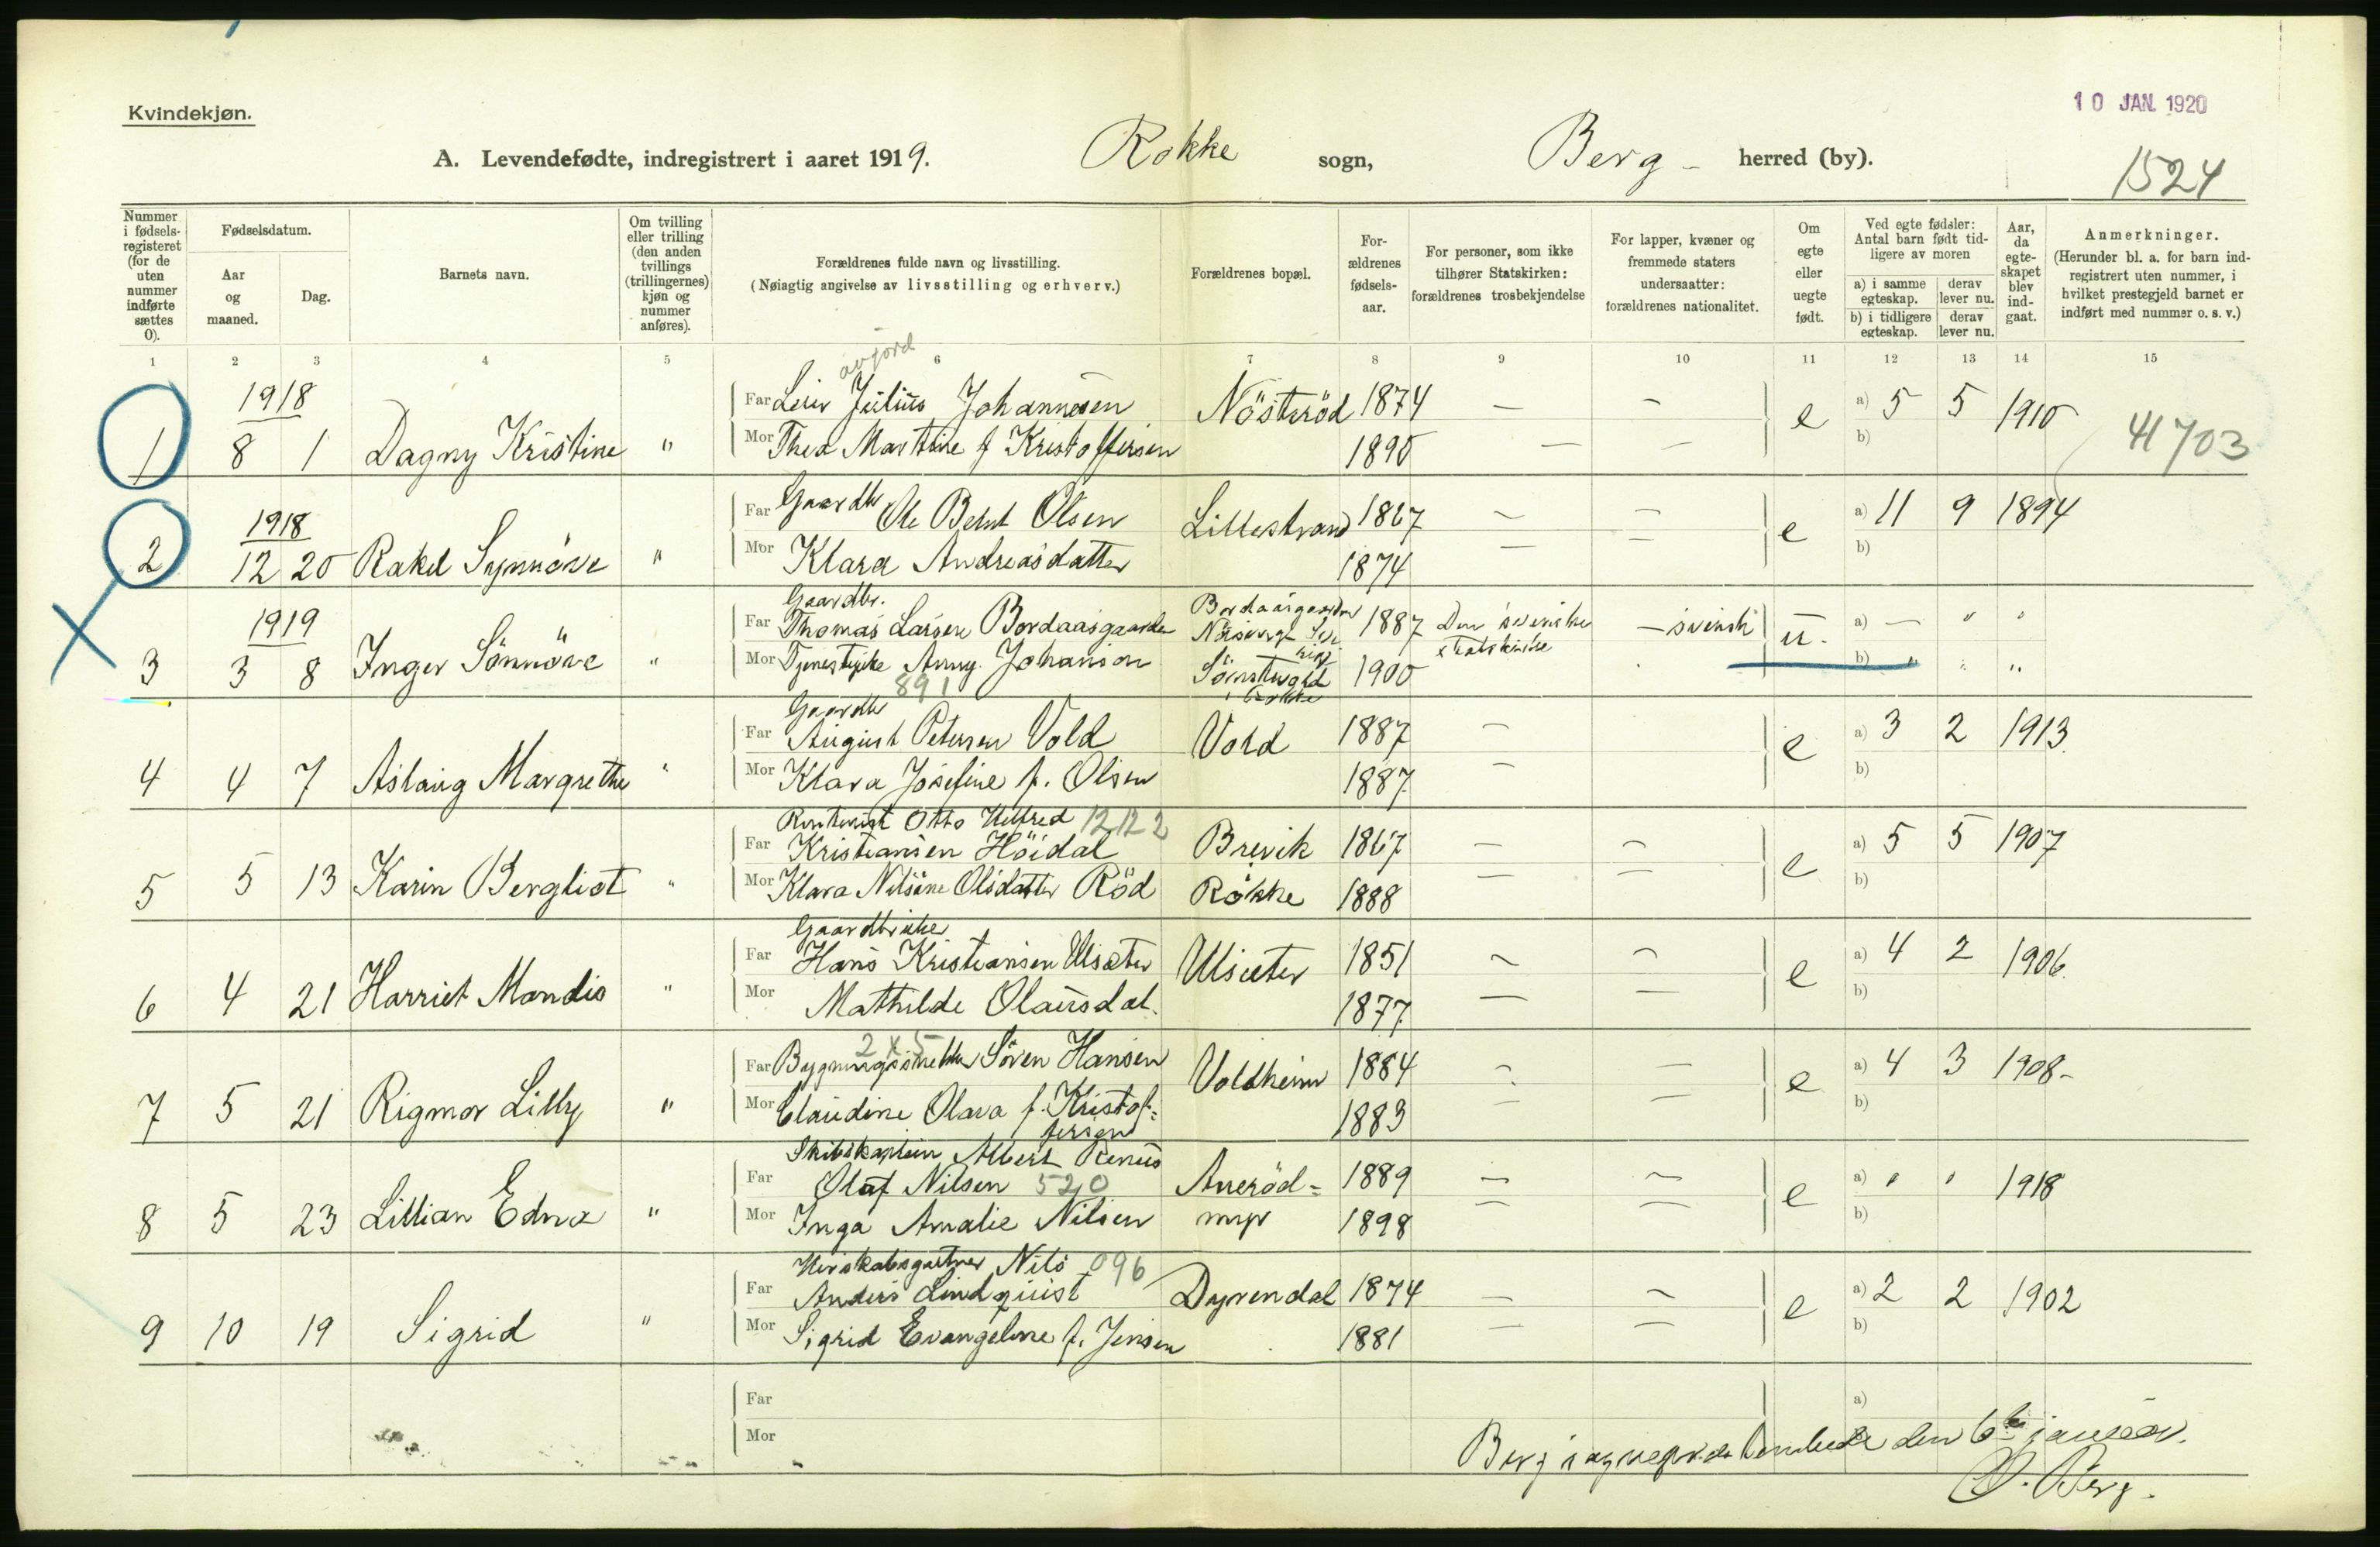 Kvindekjøn.
10 JAN. 1920
A. Levendefødte, indregistrert i aaret 1919. Rokke sogn, Berg herred (by).
1524
Nummer i fødselsregisteret (for de uten nummer indførte sættes 0).
Fødselsdatum.
Aar og maaned.
Dag.
Barnets navn.
Om tvilling eller trilling (den anden tvillings (trillingernes) kjøn og nummer anføres).
Forældrenes fulde navn og livsstilling.
(Nøiagtig angivelse av livsstilling og erhverv.)
Forældrenes bopæl.
Forældrenes fødselsaar.
For personer, som ikke tilhører Statskirken: forældrenes trosbekjendelse
For lapper, kvæner og fremmede staters undersaatter: forældrenes nationalitet.
Om egte eller uegte født.
Ved egte fødsler: Antal barn født tidligere av moren
a) i samme egteskap. derav lever nu.
b) i tidligere egteskap. derav lever nu.
Aar, da egteskapet blev indgaat.
Anmerkninger.
(Herunder bl. a. for barn indregistrert uten nummer, i hvilket prestegjeld barnet er indført med nummer o. s. v.)
1 2 3 4 5 6 7 8 9 10 11 12 13 14 15
1918
Far Julius Johannesen Nösteröd 1874 — — e a) 5 5 1910
1 8 1 Dagny Kristine " Mor Thea Martine f Kristoffersen 1890 — — b) 41703
1918
Far Gaardbr Ole Bernt Olsen Lillestrand 1867 — — e a) 11 9 1894
2 12 20 Rakel Synnöve " Mor Klara Andreasdatter 1874 — — b)
1919
Gaardbr.
Far Thomas Larsen Bordaasgaarden Bordaasgaarden 1887 Den svenske statskirke — svensk u. a) — " "
3 3 8 Inger Sönnöve " Mor Tjenestepike Anny Johanson 1900 b) " " "
891
Gaardbr
Far August Petersen Vold Vold 1887 — e a) 3 2 1913
4 4 7 Aslaug Margrethe " Mor Klara Josefine f. Olsen 1887 — b)
Otto 12122
Far Kristiansen Höidal Brevik 1867 — — e a) 5 5 1907
5 5 13 Karin Bergliot " Mor Klara Nilsine Olsdatter Röd Rokke 1888 — — b)
Gaardbruker
Far Hans Kristiansen Ulsæter Ulsæter 1851 — — e a) 4 2 1906.
6 4 21 Harriet Mandis " Mor Mathilde Olausdat. 1877 — — b)
2 x 5
Far Bygningssnekker Sören Hansen Voldheim 1884 — — e a) 4 3 1908-
7 5 21 Rigmor Lilly " Mor Claudine Olava f. Kristof=
fersen 1883 — — b)
Skibskaptein Albert
Far Olaf Nilsen 520 1889 — — e a) " " 1918
8 5 23 Lillian Edna " Mor Inga Amalie Nilsen myr 1898 — — b)
Herskabsgartner Nils 096
Far Anders Lindquist Dyrendal 1874 — — e a) 2 2 1902
9 10 19 Sigrid " Mor Sigrid Evangeline f. Jensen 1881 — — b)
Far a)
Mor
Berg den 6te januar.
O. Berg.